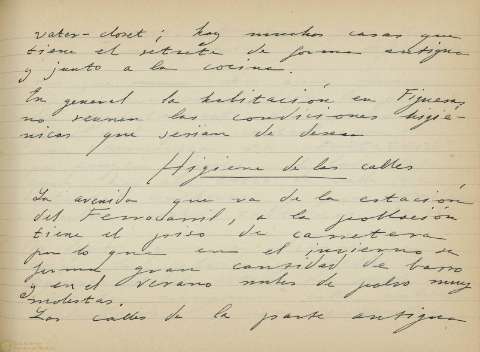 vater-closet; hay muchas casas que
tiene el retrete de forma antigua
y junto a la cocina.
En general la habitación en Figueras,
no reunen las condiciones higié-
nicas que serian de desear
Higiene de las calles
La avenida que va de la estación
del Ferrocarril, a la población
tiene el piso de carretera
por lo que en el invierno se
forma gran cantidad de barro
y en el verano nubes de polvo muy
molestas.
Las calles de la parte antigua